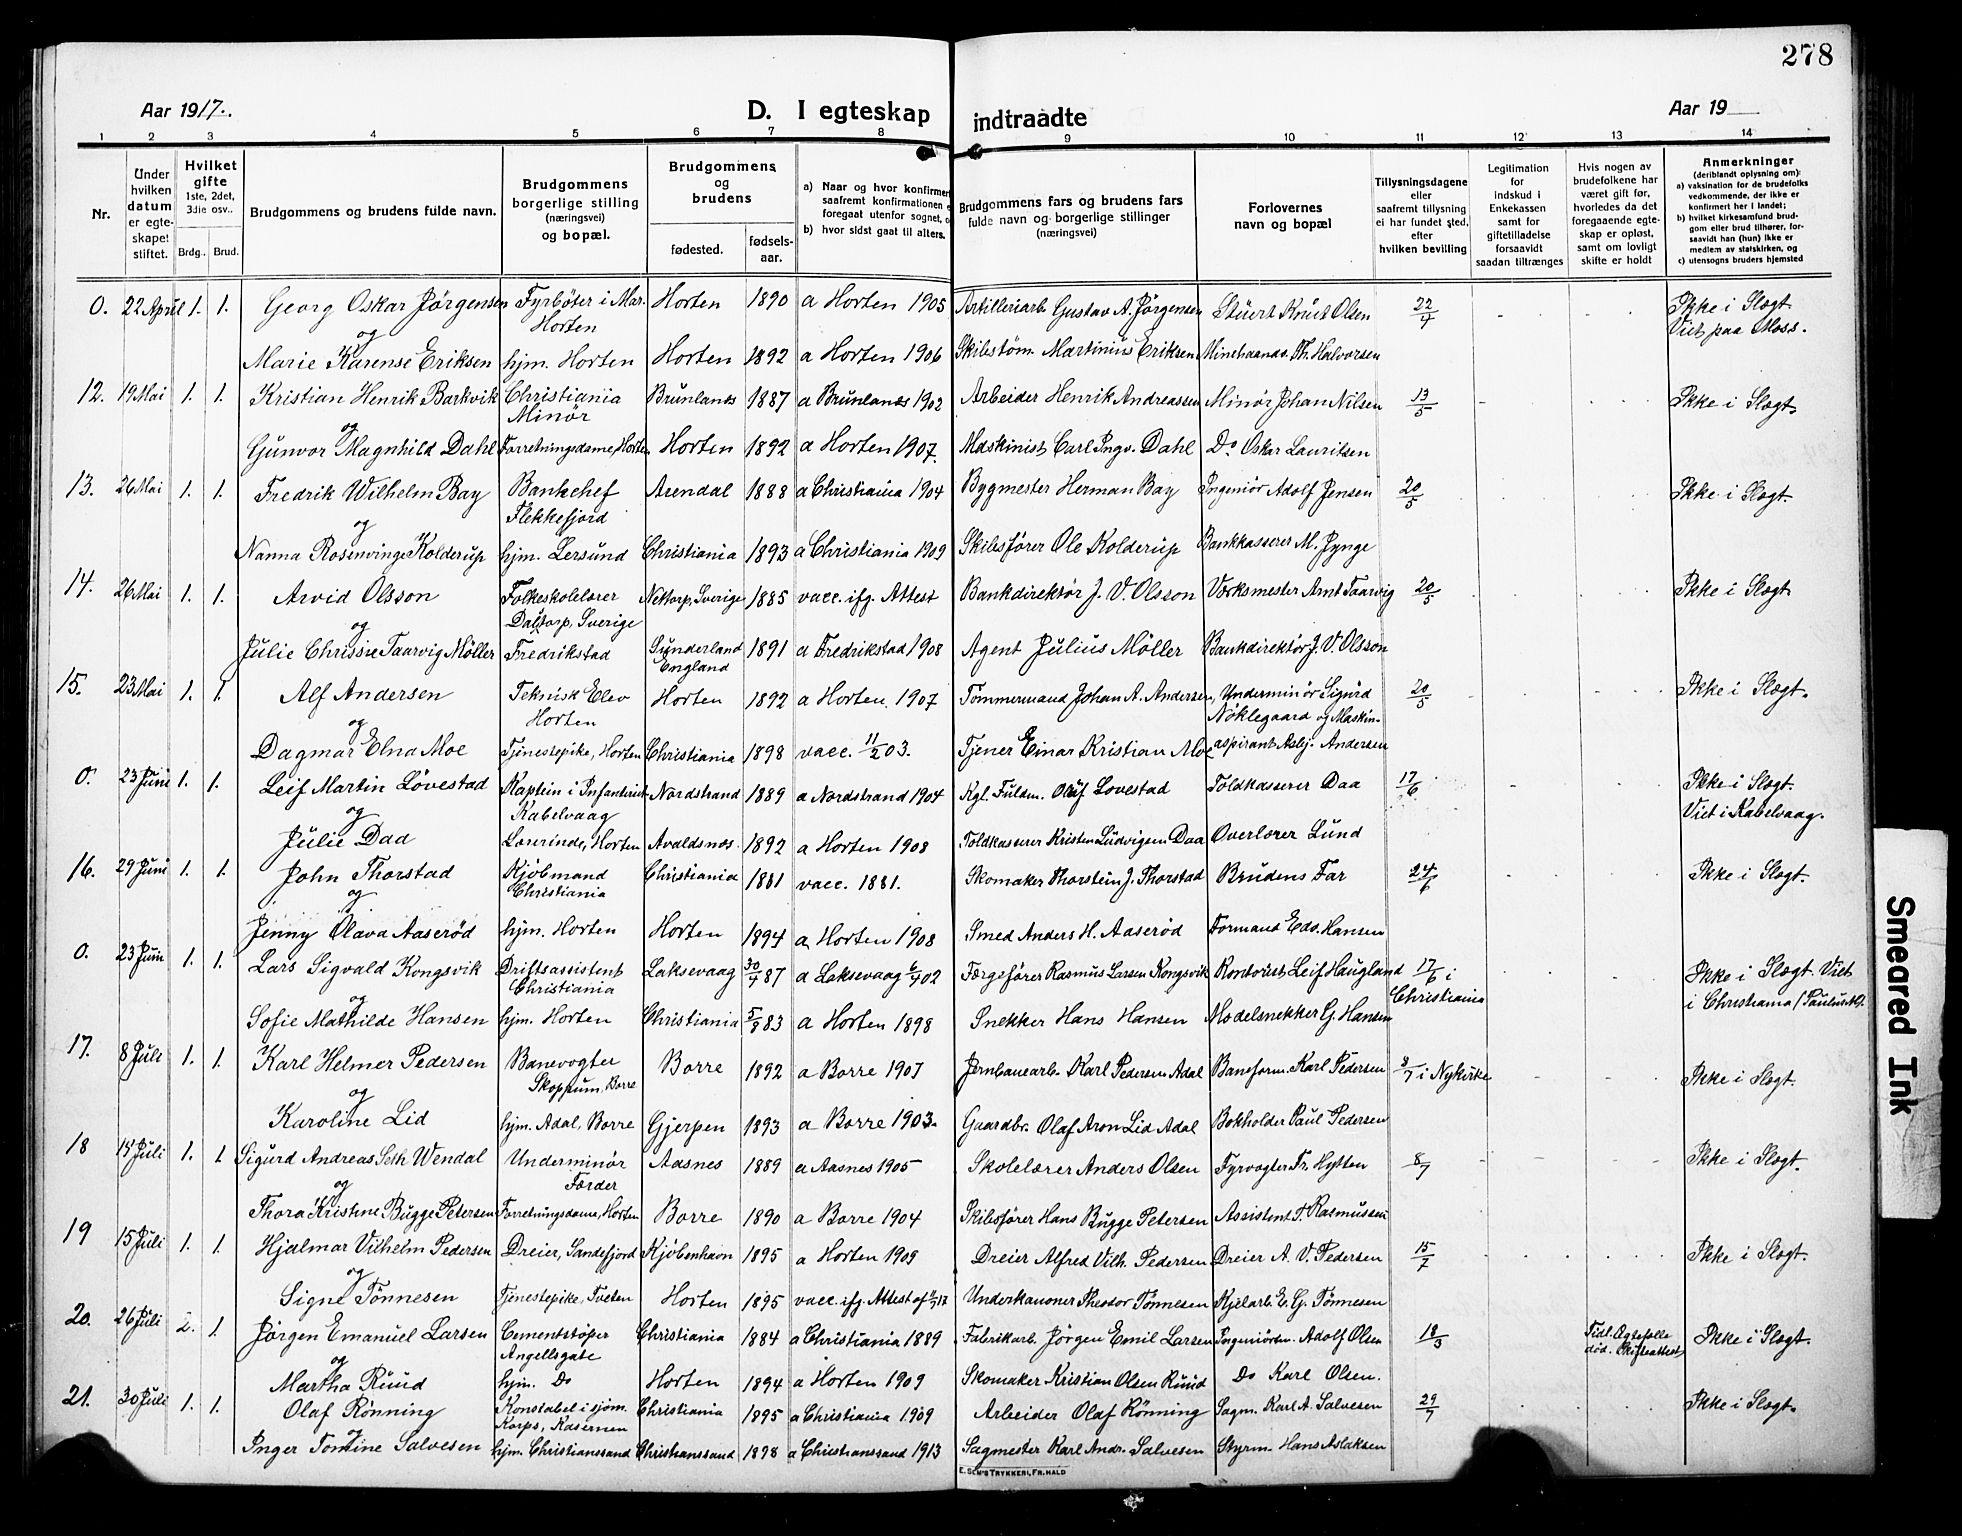 278
Aar 1917. D. I egteskap indtraadte Aar 19
1 2 3 4 5 6 7 8 9 10 11 12 13 14
Nr.
Under hvilken datum er egteskapet stiftet.
Hvilket gifte 1ste, 2det, 3die osv..
Brdg. Brud.
Brudgommens og brudens fulde navn.
Brudgommens borgerlige stilling (næringsvei) og bopæl.
Brudgommens og brudens
fødested. fødsels-aar.
a) Naar og hvor konfirmert
saafremt konfirmationen e
foregaat utenfor sognet, o
b) hvor sidst gaat til alters.
Brudgommens fars og brudens fars fulde navn og borgerlige stillinger (næringsvei)
Forlovernes navn og bopæl
Tillysningsdagene eller saafremt tillysning ei har fundet sted, efter hvilken bevilling
Legitimation for indskud i Enkekassen samt for giftetilladelse forsaavidt saadan tiltrænges
Hvis nogen av brudefolkene har været gift før, hvorledes da det foregaaende egteskap er opløst, samt om lovligt skifte er holdt
Anmerkninger
(deriblandt oplysning om):
a) vaksination for de brudefolks vedkommende, der ikke er konfirmert her i landet;
b) hvilket kirkesamfund brudgom eller brud tilhører, forsaavidt han (hun) ikke er medlem av statskirken, og
c) utensogns bruders hjemsted
0. 22 April 1. 1. Georg Oskar Jørgensen Fyrbøter i Mar. Horten Horten 1890 a Horten 1905 Artilleriarb. Gustav A. Jørgensen Stuert Knut Olsen 22/4 - - - Ikke i Slægt. Viet paa Moss.
og
Marie Karense Eriksen hjm. Horten Horten 1892 a Horten 1906 Skibstøm. Martinius Eriksen Minehaandv. Th. Halvorsen
12. 19 Mai 1. 1. Kristian Henrik Barkvik Christiania Minør Brunlanes 1887 a Brunlanes 1902 Arbeider Henrik Andreassen Minør Johan Nilsen 13/5 - Ikke i Slægt
og
Gunvor Magnhild Dahl Forretningsdame, Horten Horten 1892 a Horten 1907. Maskinist Carl Ingv. Dahl Do Oskar Lauritsen
13. 26 Mai 1. 1. Fredrik Wilhelm Bay Bankchef Flekkefjord Arendal 1888 a Christiania 1904 Bygmester Herman Bay Ingeniør Adolf Jensen 20/5 Ikke i Slægt.
og
Nanna Rosenvinge Kolderup hjm. Lersund Christiania 1893 a Christiania 1909 Skibsfører Ole Kolderup Bankkasserer M. Jynge
14. 26 Mai 1. 1. Arvid Olsson Folkeskolelærer Dalstorp, Sverige Nittorp, Sverige 1885 vacc. ifg. Attest Bankdirektør J. V. Olsson Værksmester Arnt Taarvig 20/5 Ikke i Slægt
og
Julie Chrissie Taarvig Møller Fredrikstad Sunderland England 1891 a Fredrikstad 1908 Agent Julius Møller Bankdirektør J. V. Olsson
15. 23 Mai 1. 1. Alf Andersen Teknisk Elev Horten Horten 1892 a Horten 1907 Tømmermand Johan A. Andersen, Underminør Sigurd Nøklegaard og Maskin- 20/5 - Ikke i Slægt.
og
Dagmar Elna Moe Tjenestepike, Horten Christiania 1898 vacc. 11/2 03. Tjener Einar Kristian Moe aspirant Asbj. Andersen
0. 23 Juni 1. 1. Leif Martin Løvestad Kaptein i Infanteriet Kabelvaag Nordstrand 1889 a Nordstrand 1904 Kgl. Fuldm. Oluf Lovestad Toldkasserer Daa 17/6 Ikke i Slægt. Viet i Kabelvaag.
og
Julie Daa Lærerinde, Horten Avaldsnes 1892 a Horten 1908 Toldkasserer Kristen Ludvigsen Daa Overlærer Lund
16. 29 Juni 1. 1. John Thorstad Kjøbmand Christiania Christiania 1881 vacc. 1881. Skomaker Thorstein J. Thorstad Brudens Far 24/6 Ikke i Slægt.
og
Jenny Olava Aaserød hjm. Horten Horten 1894 a Horten 1908 Smed Anders H. Aaserød Formand Edv. Hansen
0. 23 Juni 1. 1. Lars Sigvald Kongsvik Driftsassistent Christiania Laksevaag 30/4 87 a Laksevaag 6/4 02 Færgefører Rasmus Larsen Kongsvik Kontorist Leif Haugland 17/6 i Christiania Ikke i Slægt. Viet i Christiania (Paulus K).
og
Sofie Mathilde Hansen hjm. Horten Christiania 5/8 83 a Horten 1898 Snekker Hans Hansen Modelsnekker G. Hansen
17. 8 Juli 1. 1. Karl Helmer Pedersen Banevogter Skoppum, Borre Borre 1892 a Borre 1907 Jernbanearb. Karl Pedersen Adal Baneform. Karl Pedersen 8/7 i Nykirke Ikke i Slægt.
og
Karoline Lid hjm. Adal, Borre Gjerpen 1893 a Borre 1903. Gaardbr. Olaf Aron Lid Adal Bokholder Paul Pedersen
18 15 Juli 1. 1 Sigurd Andreas Seth Wendal Underminør Færder Aasnes 1889 a Aasnes 1905 Skolelærer Anders Olsen Fyrvogter Fr. Hytten 8/7 Ikke i Slægt.
og
Thora Kristine Bugge Petersen Forretningsdame, Horten Borre 1890 a Borre 1904 Skibsfører Hans Bugge Petersen Assistent F. Rasmussen
19 15 Juli 1. 1. Hjalmar Vilhelm Pedersen Dreier, Sandefjord Kjøbenhavn 1895 a Horten 1909 Dreier Alfred Vilh. Pedersen Dreier A. V. Pedersen 15/7 Ikke i Slægt.
og
Signe Tønnesen Tjenestepike, Tveten Horten 1895 vacc. ifg. Attest af 17 Underkanoner Theodor Tønnesen Kjelarb. E. G. Tønnesen
20. 26 Juli 2. 1. Jørgen Emanuel Larsen Cementstøper Angellsgate Christiania 1884 a Christiania 1889 Fabrikarb. Jørgen Emil Larsen Ingeniørsn. Adolf Olsen 18/3 Tidl. Egtefælle død. Skifteattest Ikke i Slægt.
og
Martha Ruud hjm. Do Horten 1894 a Horten 1909 Skomaker Kristian Olsen Ruud Do Karl Olsen.
21. 30 Juli 1. 1. Olaf Rønning Konstabel i sjøm. Korps, Kasernen Christiania 1895 a Christiania 1909 Arbeider Olaf Rønning Sagm. Karl A. Salvesen 29/7 Ikke i Slægt.
Inger Tomine Salvesen hjm. Christianssand Christianssand 1898 a Christianssand 1913 Sagmester Karl Andr. Salvesen Styrm. Hans Aslaksen
E. SEM'S TRYKKERI, FR.HALD
Smeared Ink